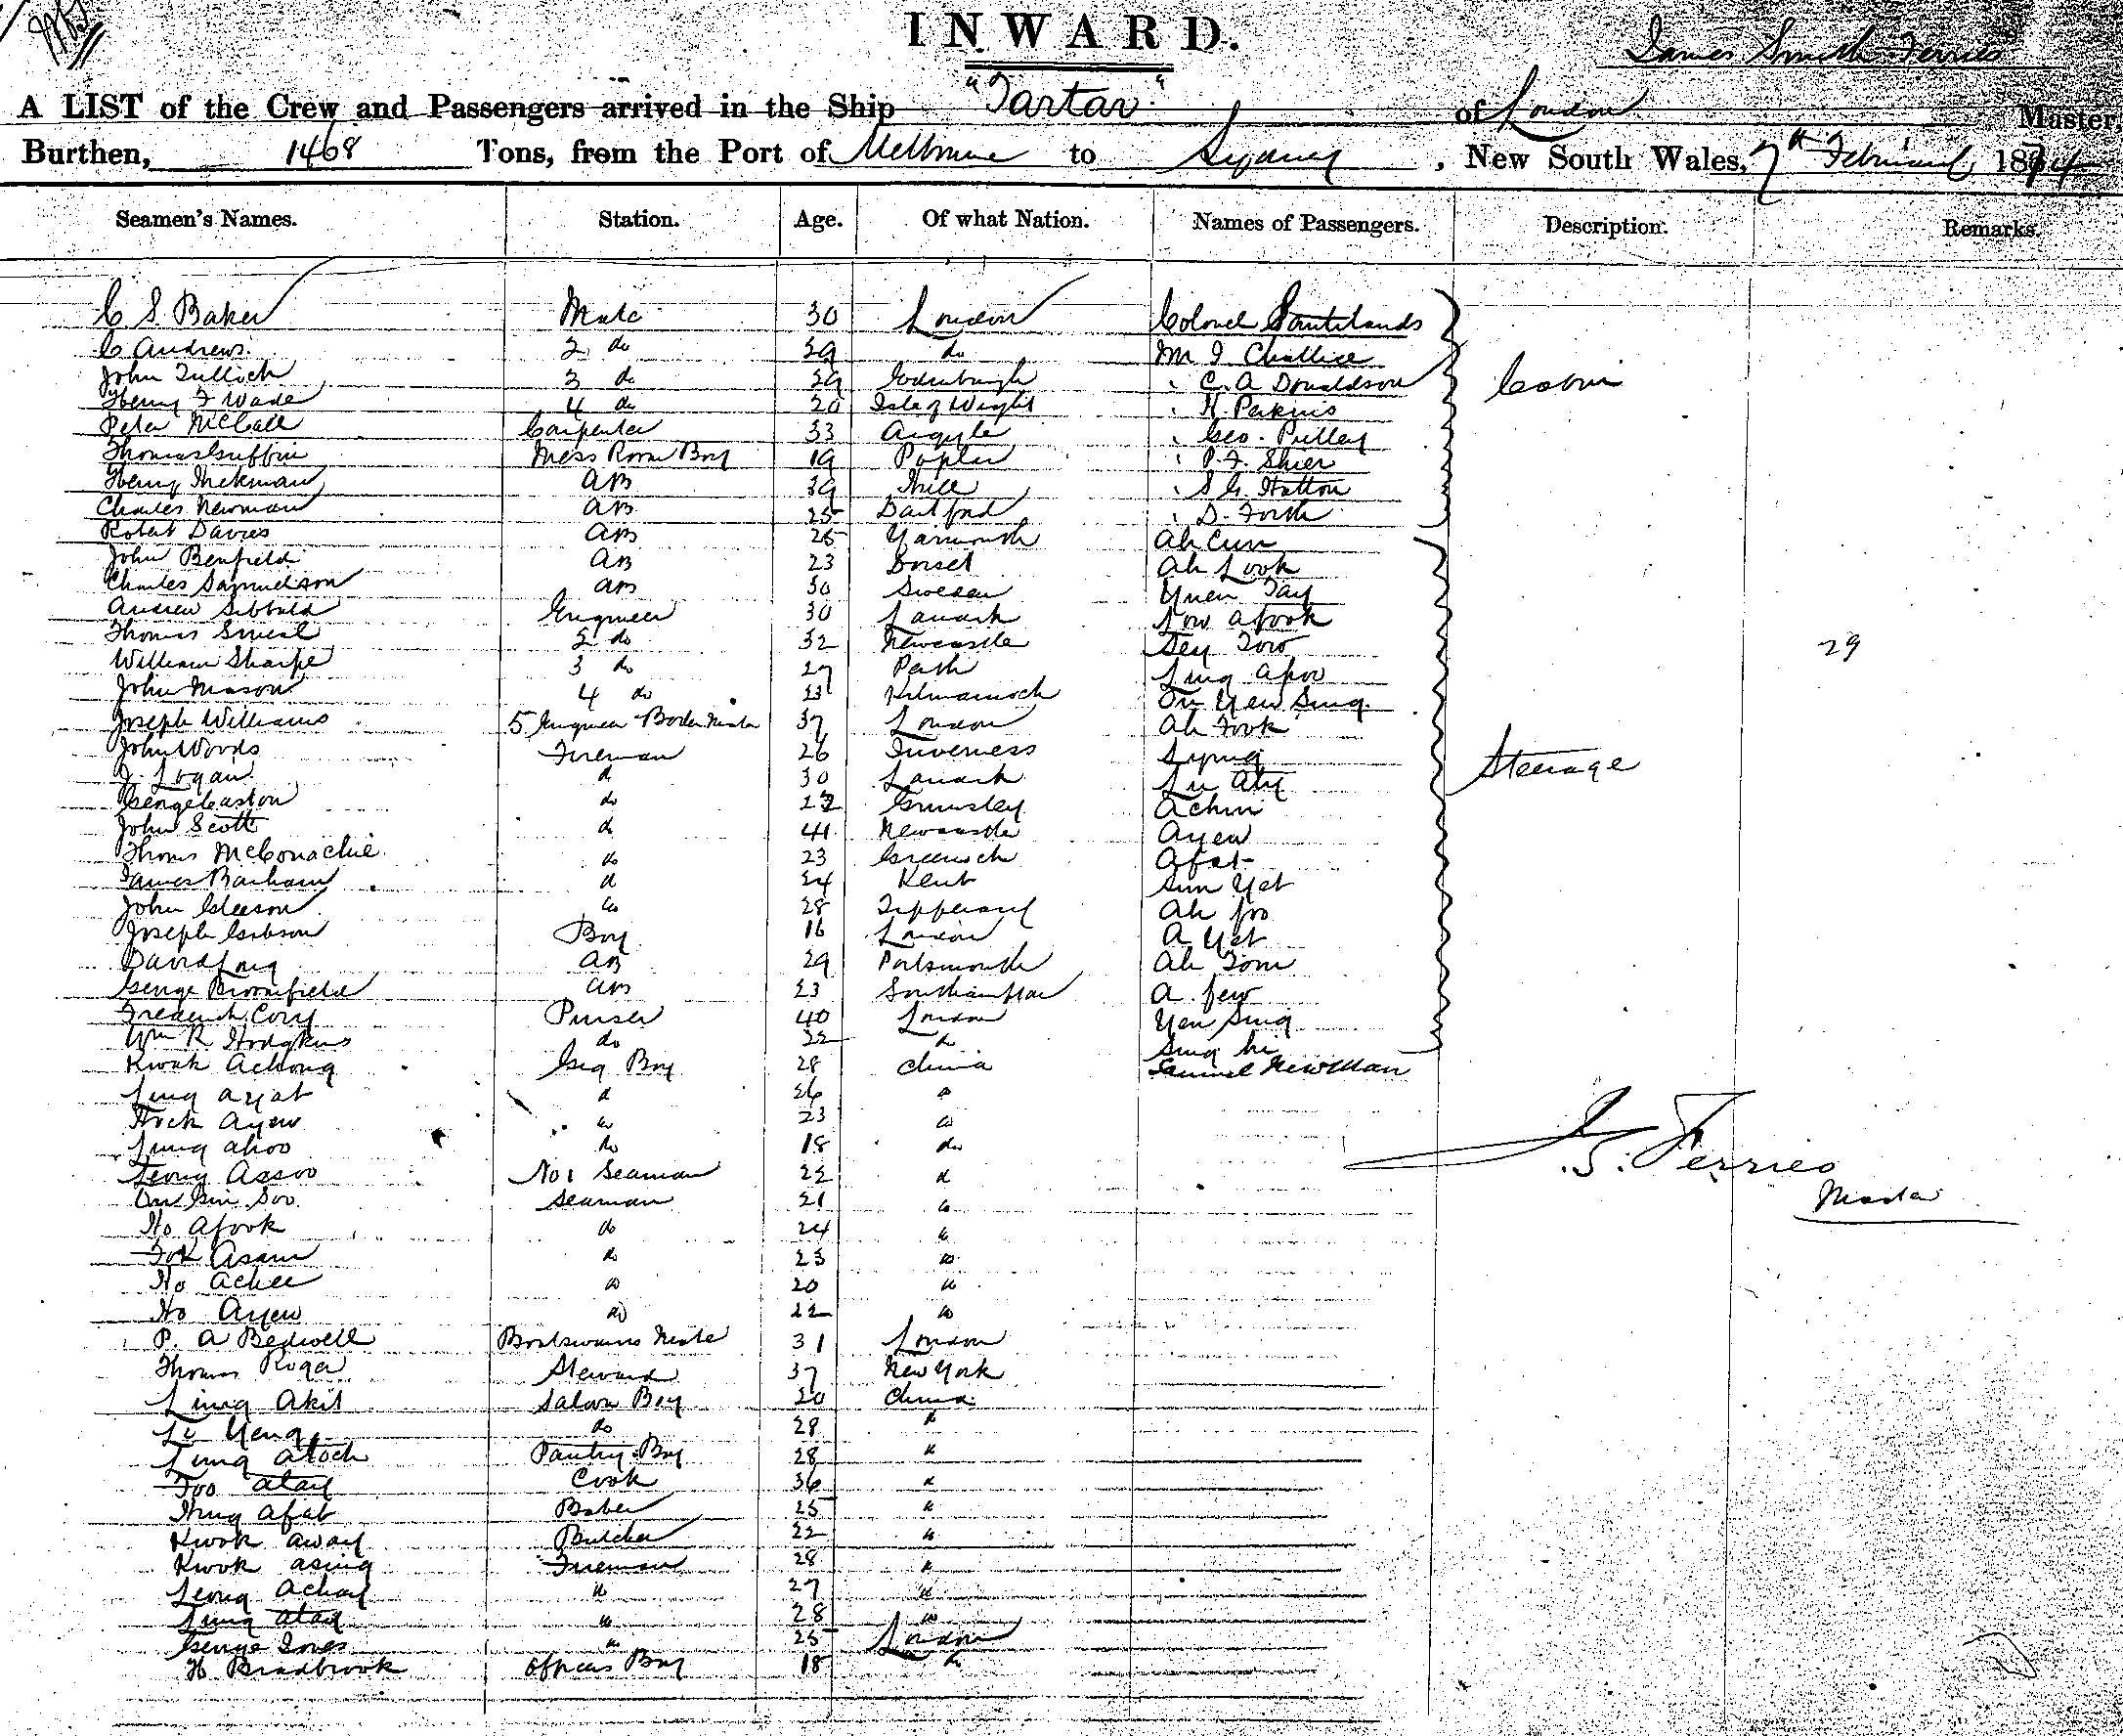 INWARD.
James Smith Ferries
A LIST of the Crew and Passengers arrived in the Ship "Tartar" of London Master,
Burthen, 1468 Tons, from the Port of Melbourne to Sydney, New South Wales, 7th February 1874
Seamen's Names. Station. Age. Of what Nation. Names of Passengers. Description. Remarks.
C S. Baker Mate 30 London Colonel
C Andrews 2 do 29 do M I Challice
John Tulloch 3 do 29 Edinburgh " C. A Donaldson Cabin
Henry F Wade 4 do 20 Isle of Wight " H. Perkins
Peter McCall Carpenter 33 Argyle " Geo. Pulley
Thomas Griffin Mess Room Boy 19 Poplar " P. F. Shier
Henry Hickman AB 39 Hull " S G. Hatton
Charles Newman AB 25 Dartford " D. Forth
Robert Davies AB 25 Yarmouth Ah Cum
John Benfield AB 23 Dorset Ah Look
Charles Samuelson AB 30 Sweden Yuen Tay
Andrew Sibbald Engineer 30 Lanark Low Afook
Thomas 2 do 32 Newcastle Sey Tow 29
William Sharpe 3 do 27 Perth Ling Apoo
John Mason 4 do 23 Kilmarnock On Yew Sing
Joseph Williams 5 Engineer Boiler Maker 37 London Ah Fook
John Woods Fireman 26 Inverness Sying Steerage
J. Logan d 30 Lanark Lu Aty
George Caston do 22 Grimsley Achin
John Scott d 41 Newcastle Ayew
Thoms McConachie do 23 Greenock Afat
James Barham d 24 Kent Sun Yet
John Gleeson do 28 Tipperary Ah foo
Joseph Gibson Boy 16 London A Yet
David Long AB 29 Portsmouth Ah Tom
George Bromfield AB 23 Southampton A few
Frederick Cory Purser 40 London Yen Sing
Wm R Hodgkins do 22 do Sing hi
Kwok Achong Gig Boy 28 China Samuel Newman
Ling Ayat d 26 do
Hock Ayew do 23 do
Ling Ahoo do 18 do
Leong Assoo No 1 Seaman 22 d J. S. Ferries
Soo Seaman 21 do Master
Ho Afook do 24 do
Fok Asam do 23 do
Ho Achee do 20 do
Ho Ayew do 22 do
P. A Bedwell Boatswains Mate 31 London
Thomas Roger Steward 37 New York
Ling Akit Saloon Boy 20 China
Le Yeng do 28 d
Ling Atock Pantry Boy 28 do
Foo Atay Cook 36 d
Hung Afat Baker 25 do
Kwok Away Butcher 22 do
Kwok Asing Fireman 28 do
Leong Achay do 27 do
Ling Atay do 28 do
George Jones do 25 London
H. Bradbrook Officers Boy 18 do